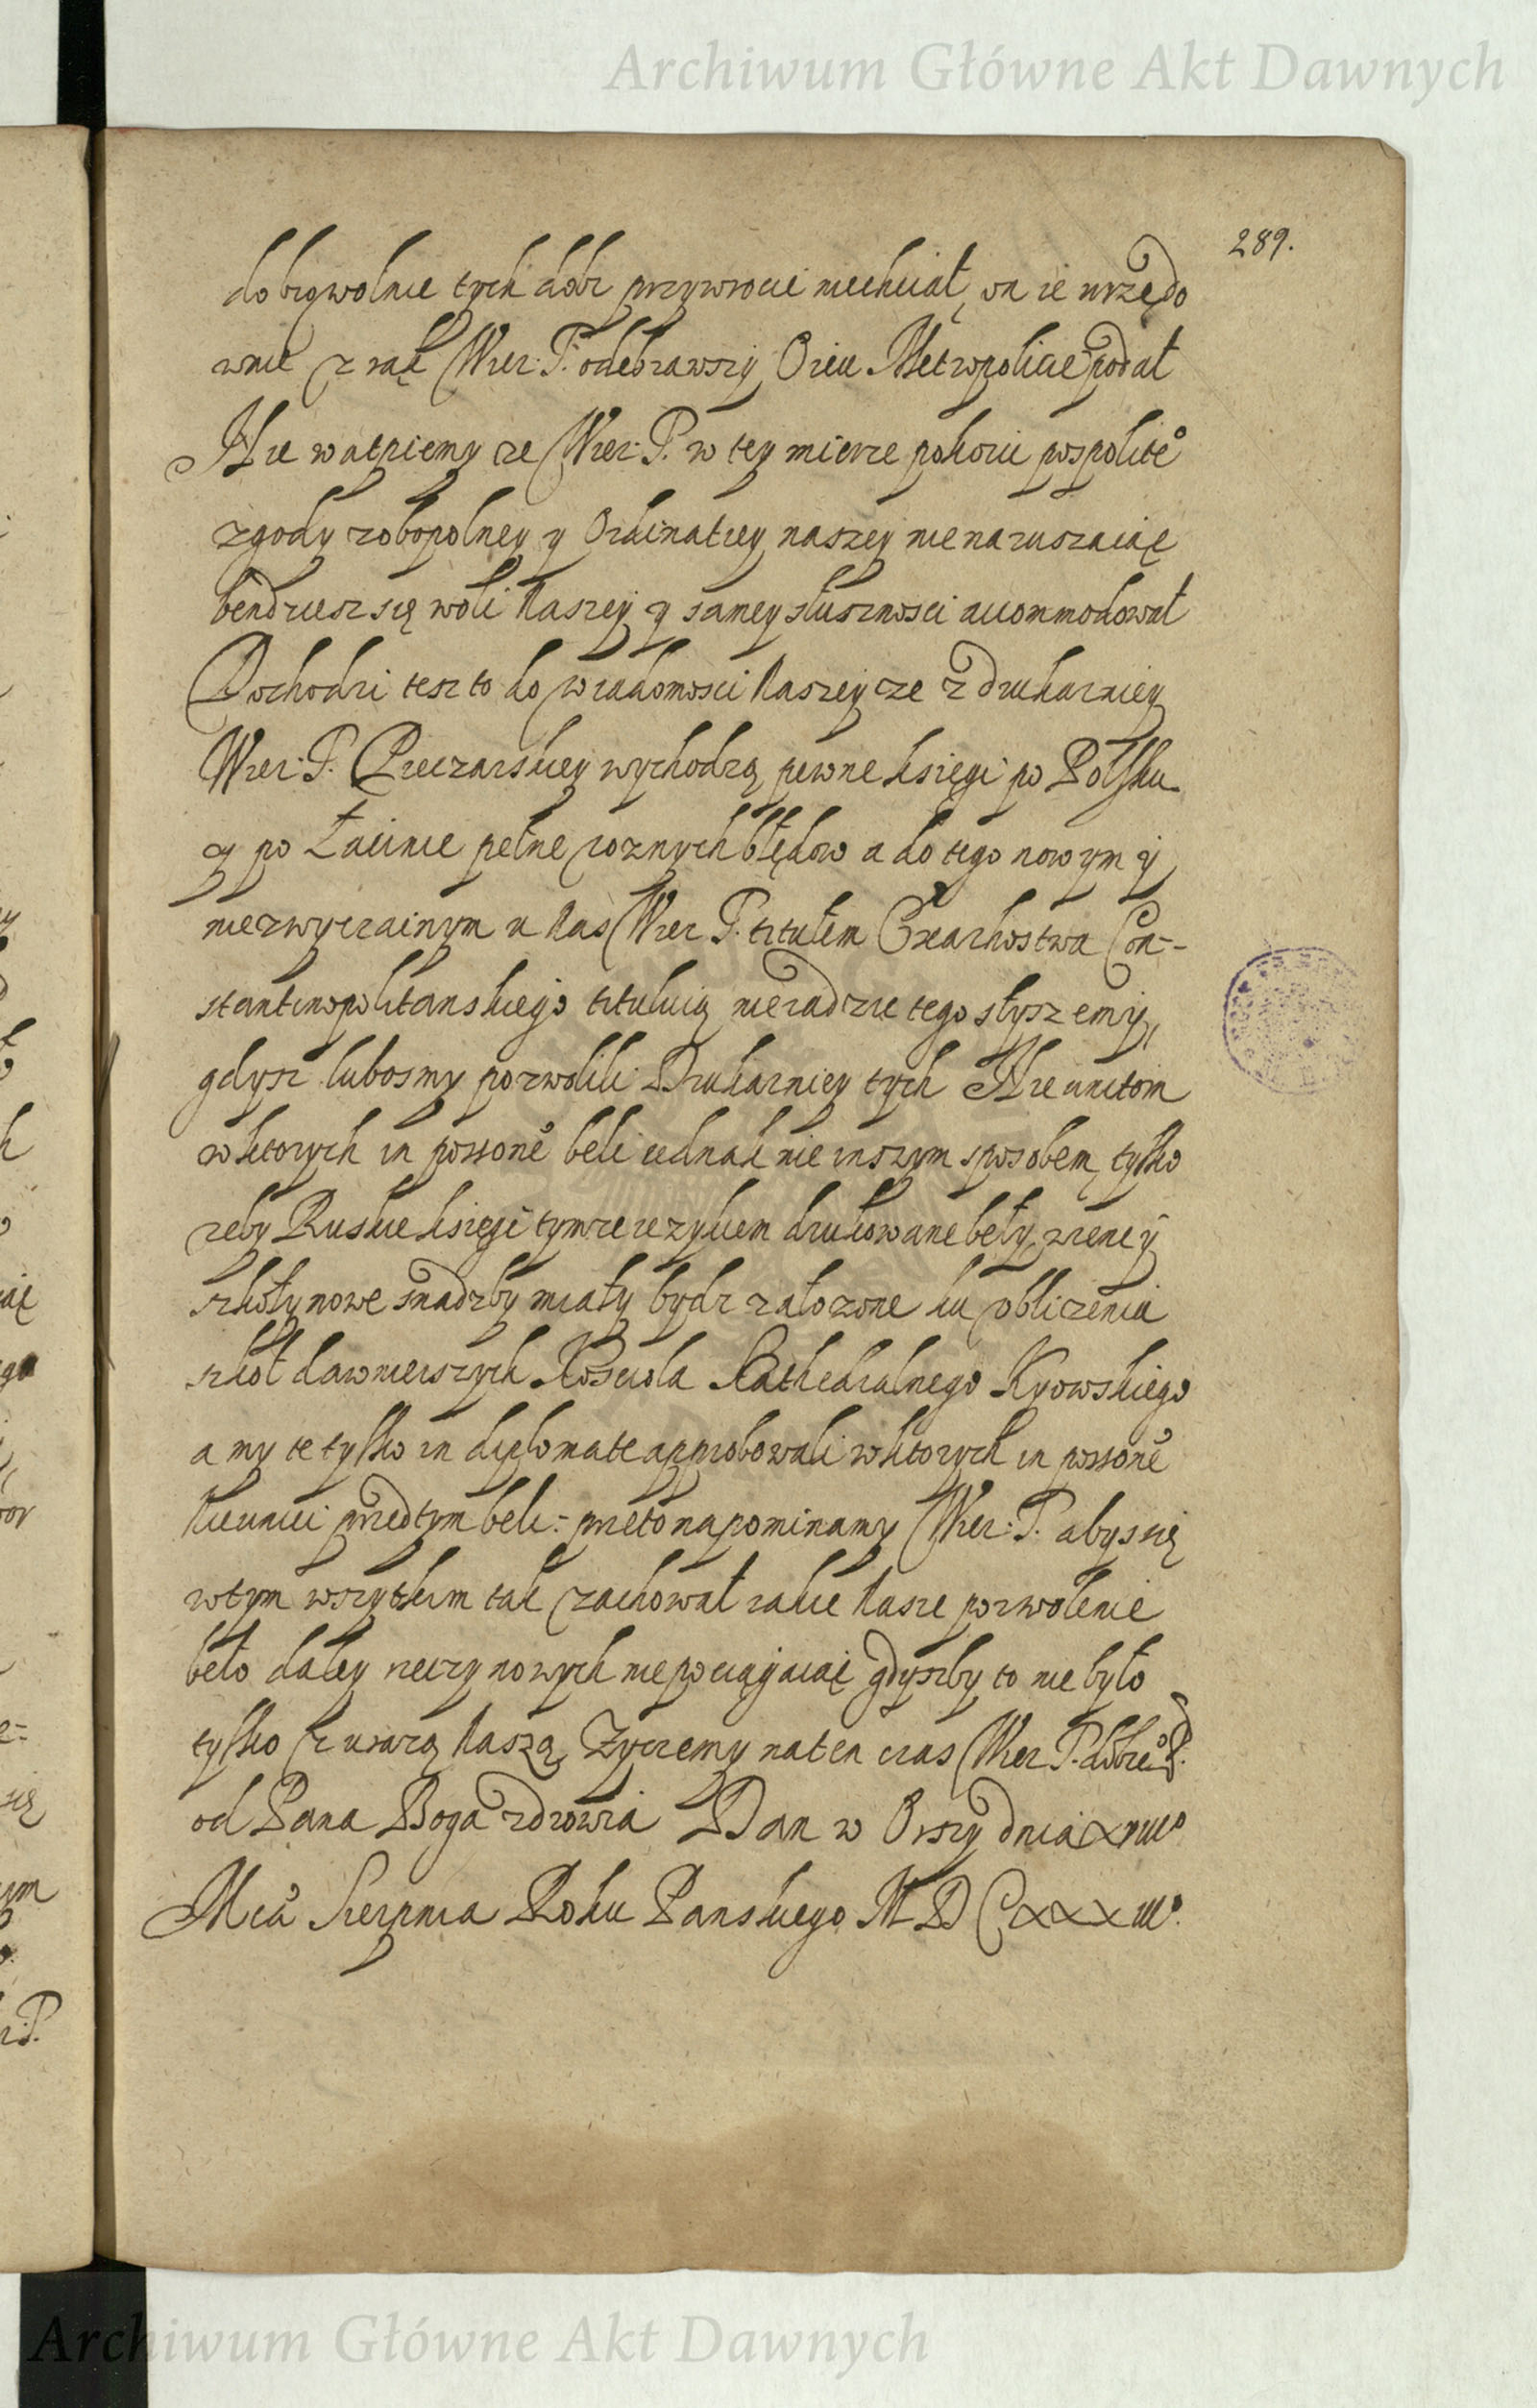 Archiwum Główne Akt Dawnych
289.
dobrowolnie tych dobr przywrocic niechciał, on ie urzędo
wnie z rąk Wier: P. odebrawszy Oicu Metropolicie podał
Nie wątpiemy ze Wier: P. w tey mierze pokoiu pospolite͠
zgody zobopolney y Ordinatiey naszey nienaruszaiąc
bendziesz się woli Naszey y samey słusznosci accommodował
Dochodzi tesz to do wiadomosci Naszey ze z drukarniey
Wier: P. Pieczarskiey wychodzą pewne księgi po Polsku
y po Łacinie pełne roznych błędow a do tego nowym y
niezwyczainym u Nas Wier P. titułem Exarhostwa Con-
stantinopolitanskiego tituluią nieradzie tego słyszemy,
gdysz lubosmy pozwolili Drukarniey tych Nieunitom
w ktorych in possone͠ beli iednak nie inszym sposobem, tylko
zeby Ruskie księgi tymze ięzykiem drukowane beły, zieney
szkoły nowe snadzby miały bydz załozone ku obliczeniu
szkoł dawnieiszych Kosciola Kathedralnego Kyowskiego
a my te tylko in diplomate approbowali w ktorych in possone͠
Nieunici przedtym beli: przeto napominamy Wier: P. abys się
w tym wszytkim tak zachował iakie Nasze pozwolenie
beło daley rzeczy nowych nie pociągaiąc gdyszby to nie było
tylko z urazą Naszą, Zyczemy na ten czas Wier P. dobre͠
od Pana Boga zdrowia Dan w Orszy dnia
Mca Sierpnia Roku Panskiego M D C xxx iii°.
Archiwum Główne Akt Dawnych